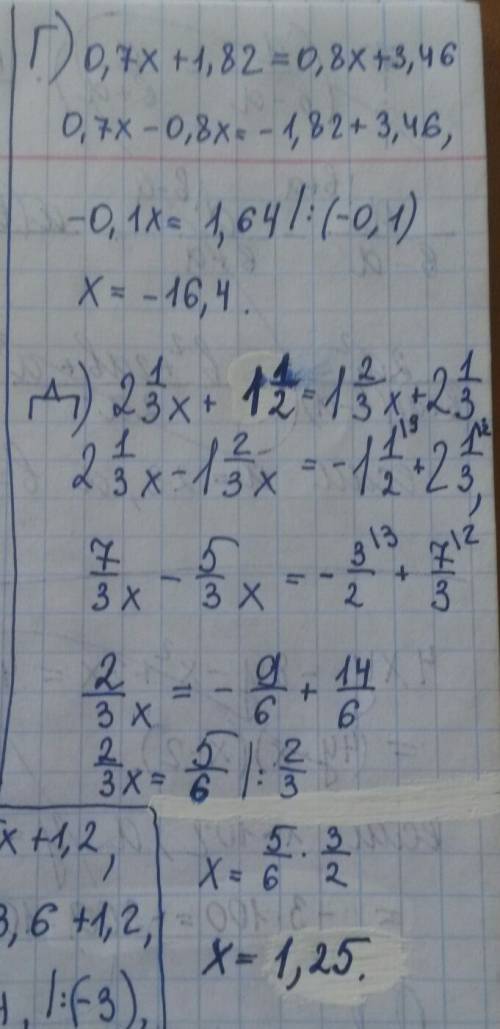 Г) 0,7x + 1,82 = 0,8x + 3,46
0,7x - 0,8x = - 1,82 + 3,46,
-0,1x = 1,64 /:(-0,1)
x = -16,4.
Д) 2 1/3 x + 1 1/2 = 1 2/3 x + 2 1/3
2 1/3 x - 1 2/3 x = -1 1/2 \3 + 2 1/3 \2,
7/3 x - 5/3 x = - 3/2 \3 + 7/3 \2
2/3 x = - 9/6 + 14/6
2/3 x = 5/6 /: 2/3
x = 5/6 · 3/2
x = 1,25.
x + 1,2,
3,6 + 1,2,
/:(-3),